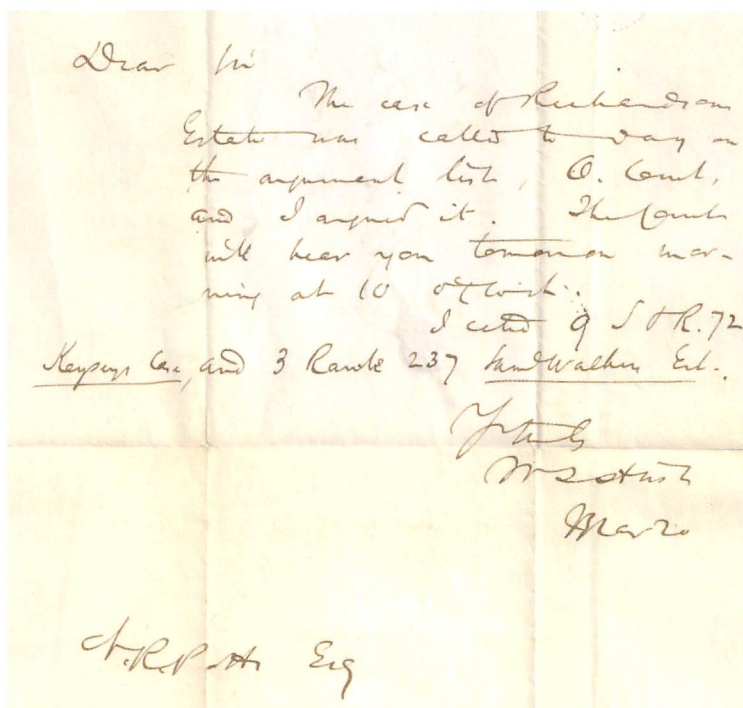 Dear Sir
The case of Richardsons
Estate was called to day on
the argument list, O. Court,
and I argued it. The Court
will hear you tomorrow mor-
ning at 10 o'clock.
I cited 9 S & R. 72
Keysers Case, and 3 Rawle 237 Saml Walkers Est.
Yr truly
Mar 20
Esq